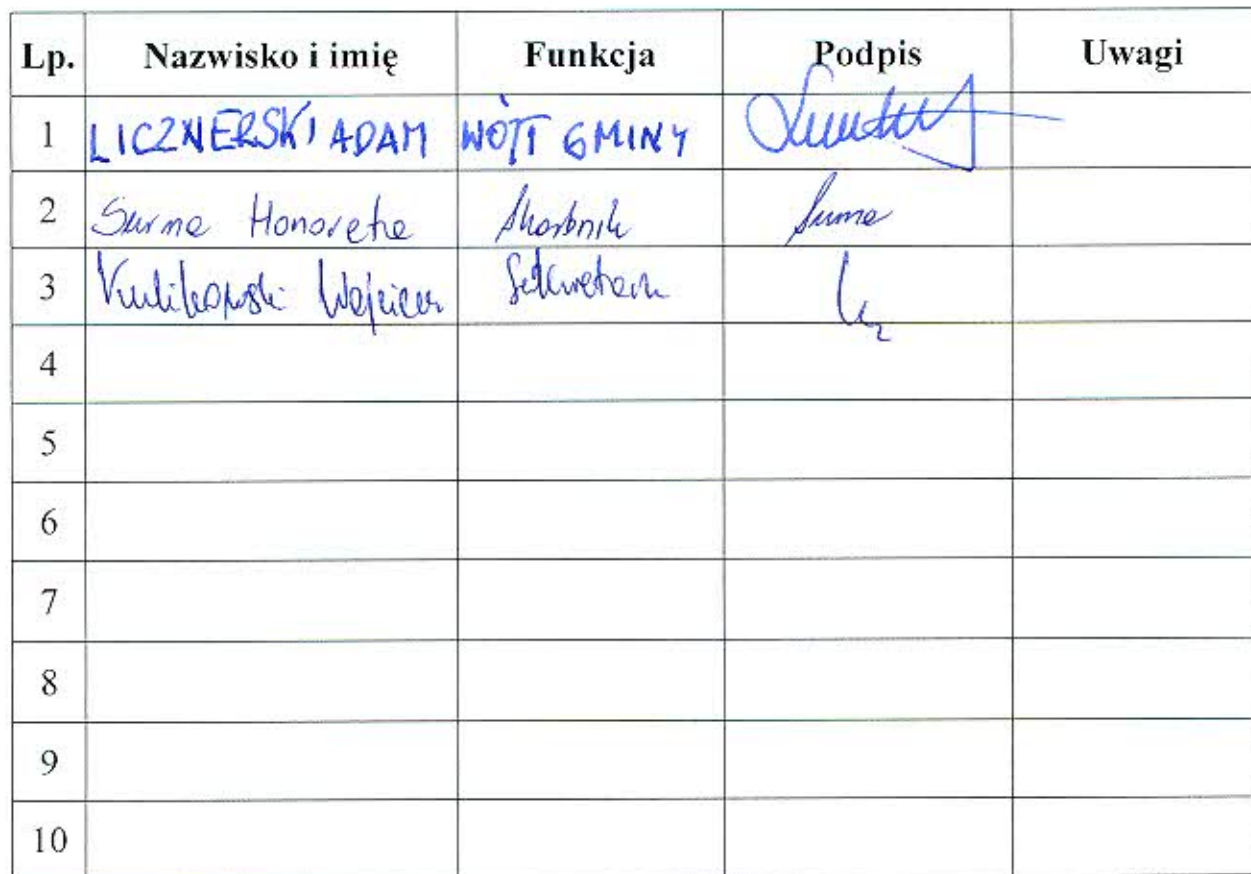 Lp. Nazwisko i imię Funkcja Podpis Uwagi
1 LICZNERSKI ADAM WÓJT GMINY
2 Surma Honoreta Skarbnik Surma
3 Kulikowski Wojciech Sekretarz
4
5
6
7
8
9
10